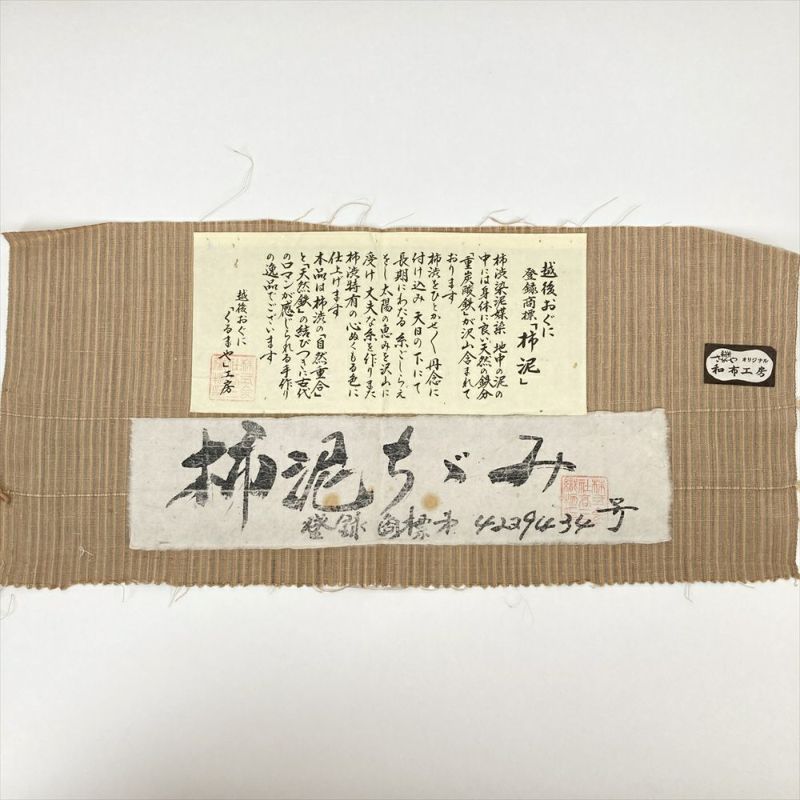 越後おぐに
登録商標「柿泥」
柿渋染泥媒染 地中の泥の
中には身体に良い天然の鉄分
「重炭酸鉄」が沢山含まれて
おります
柿渋をひとかせ〱丹念に
付け込み 天日の下にて
長期にわたる 糸ごしらえ
をし 太陽の恵みを沢山に
受け 丈夫な糸を作りまた
柿渋特有の心ぬくもる色に
仕上げます
本品は柿渋の「自然重合」
と「天然鉄」の結びつきに古代
のロマンが感じられる手作り
の逸品でございます
越後おぐに
「くるまや」工房
柿泥ちゞみ
登録商標第4239434号
オリジナル
和布工房